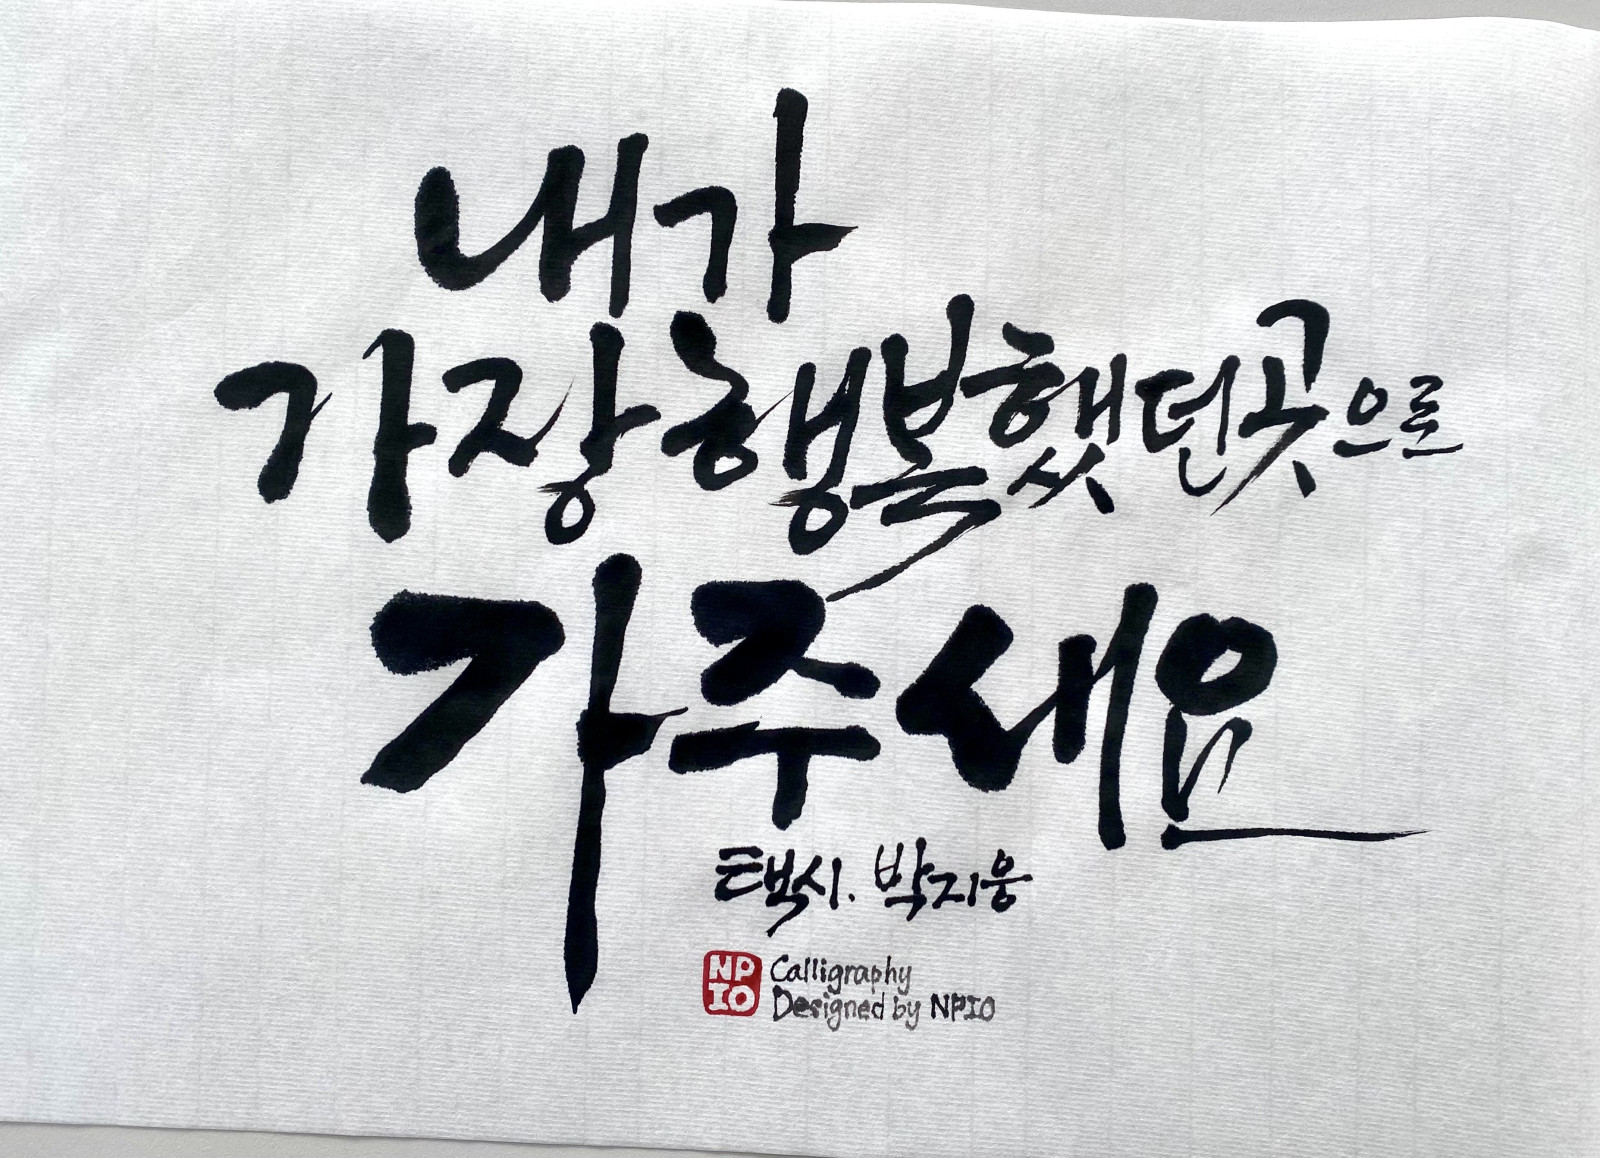 내가
가장 행복했던 곳으로
가주세요
택시. 박지웅
NP
IO
Calligraphy
Designed by NPIO